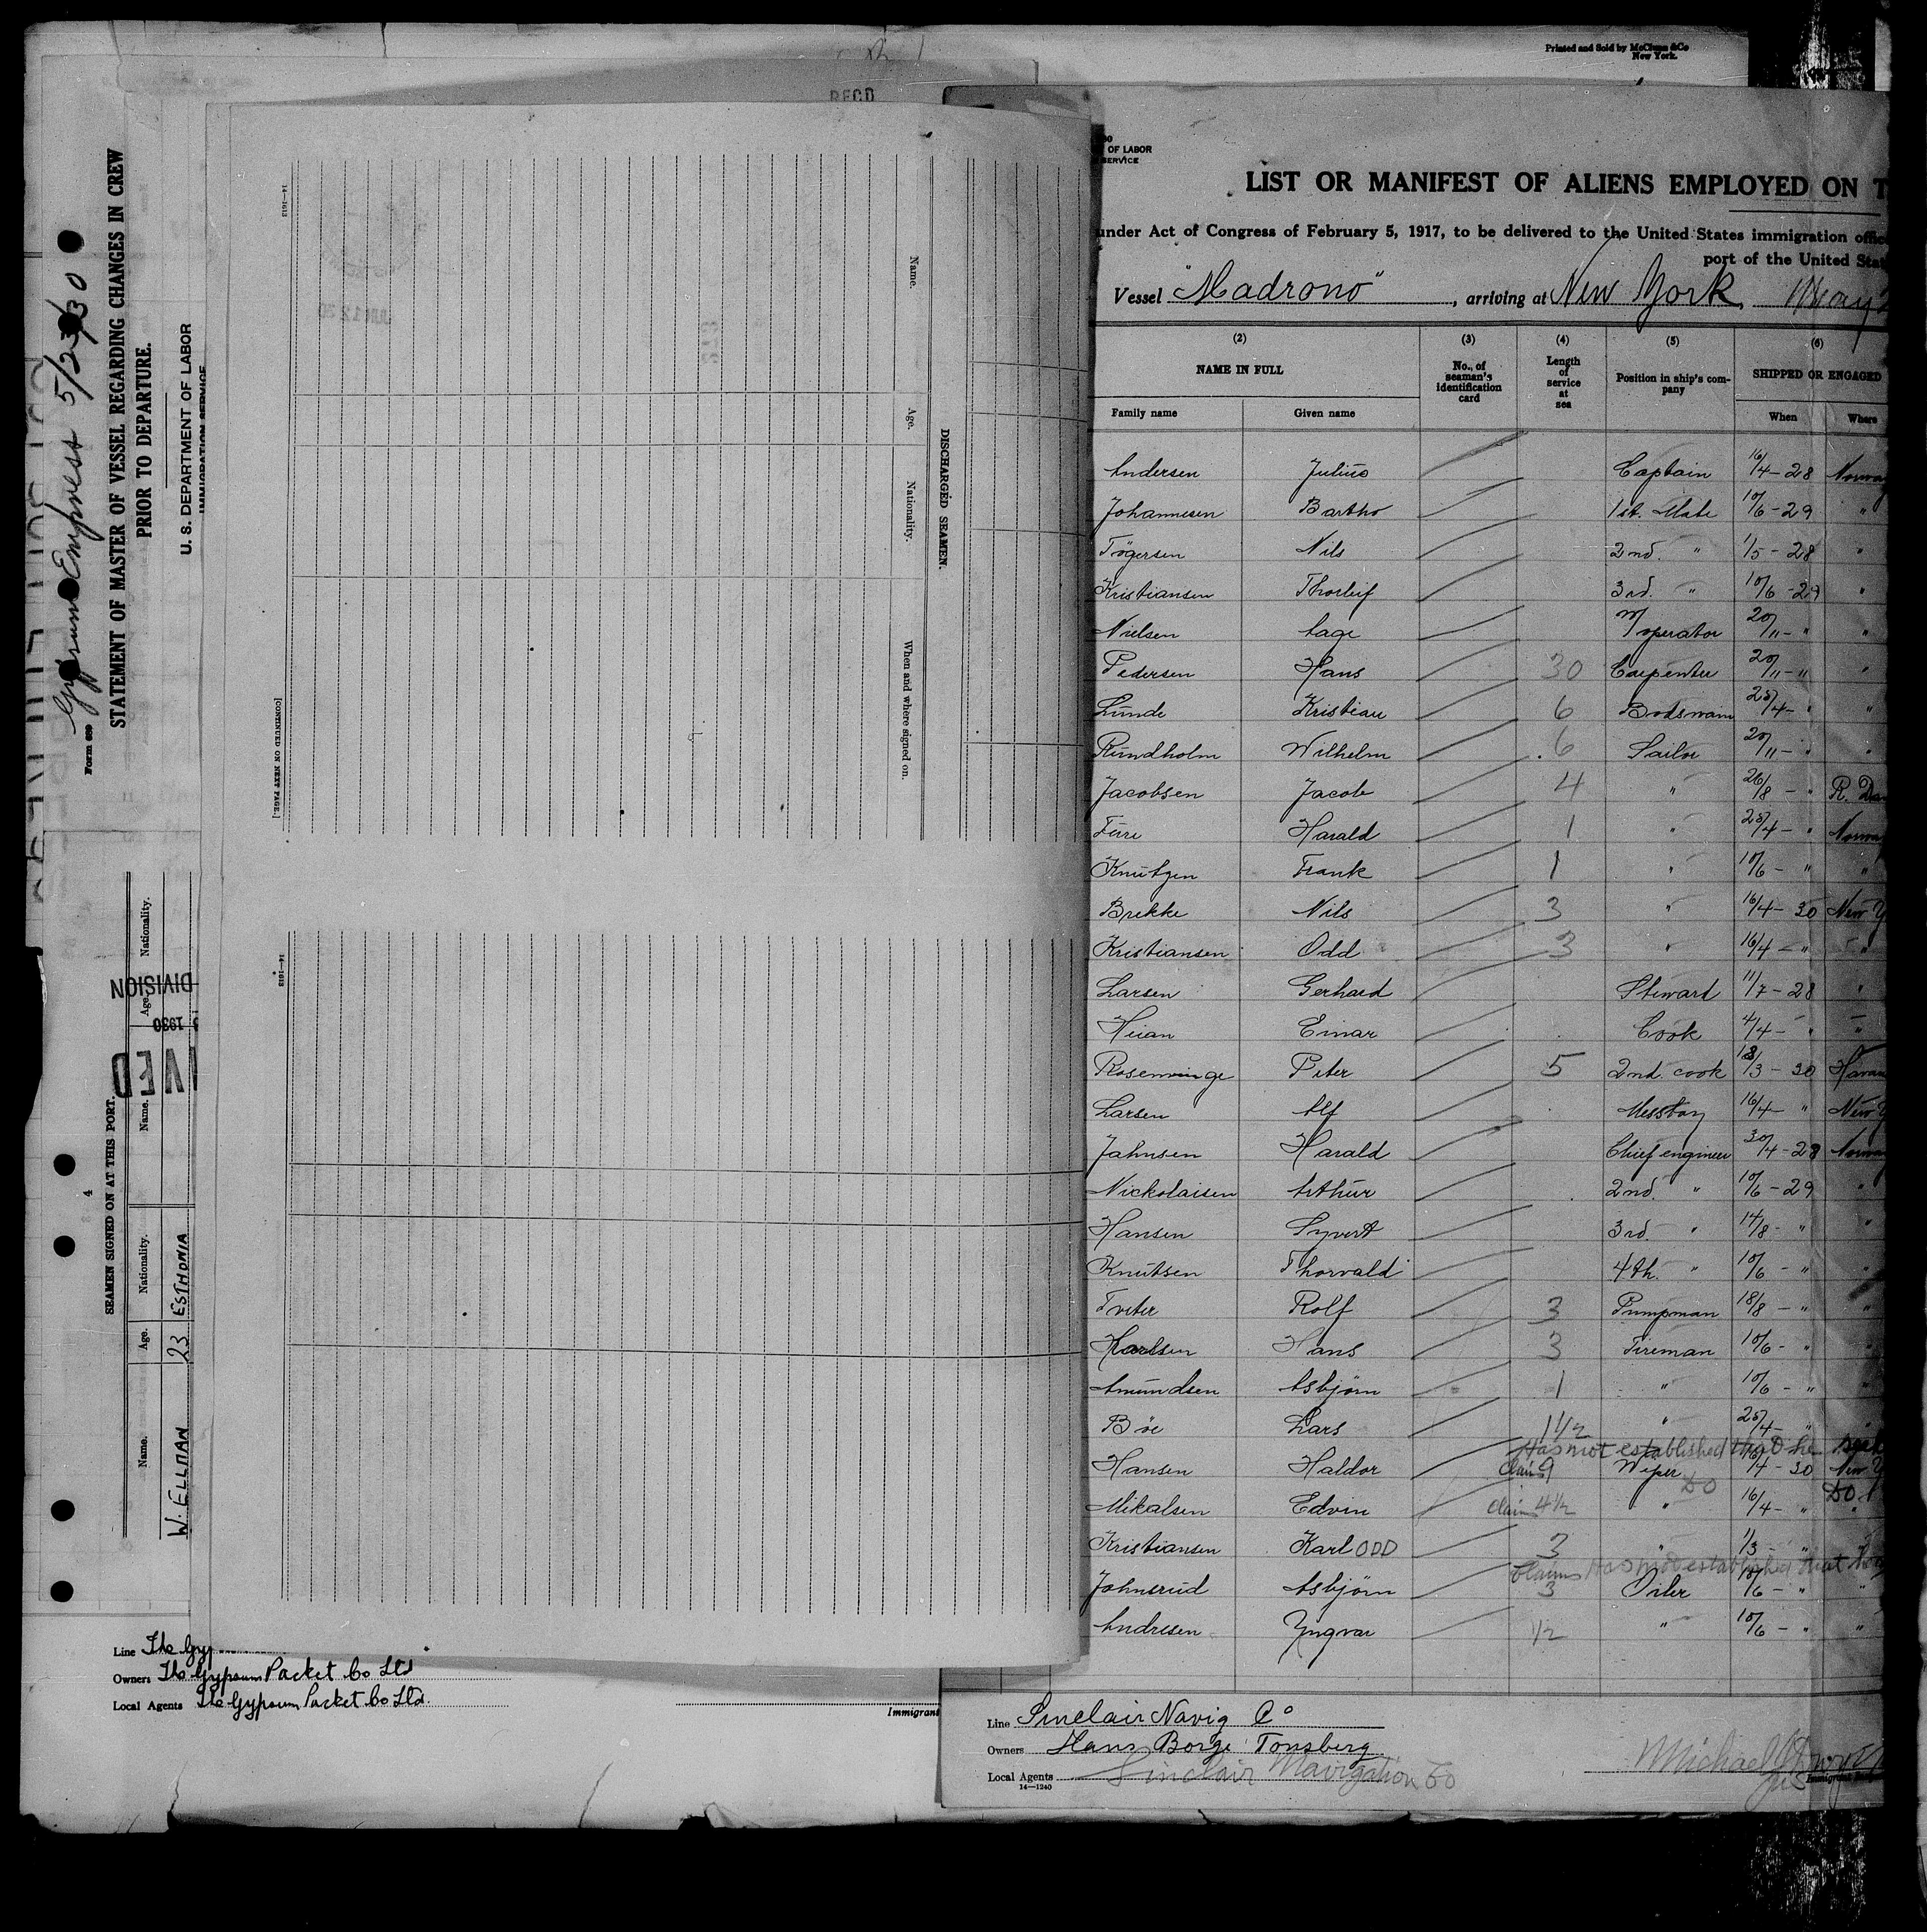 Printed and Sold by McClunn & Co
New York.
RECD
Gypsum Empress 5/23/30
Form 689
STATEMENT OF MASTER OF VESSEL REGARDING CHANGES IN CREW
PRIOR TO DEPARTURE.
U. S. DEPARTMENT OF LABOR
IMMIGRATION SERVICE
4
SEAMEN SIGNED ON AT THIS PORT.
Name. Age. Nationality. Name. Age. Nationality.
W. ELLMAN 23 ESTHONIA
DIVISION
1930
VED
Line The Gyp
Owners The Gypsum Packet Co Ltd
Local Agents The Gypsum Packet Co Ltd.
Immigrant
DISCHARGED SEAMEN.
Name. Age. Nationality. When and where signed on.
[CONTINUED ON NEXT PAGE.]
14-1613
14-1613
JAN 12 30
OF LABOR
SERVICE
LIST OR MANIFEST OF ALIENS EMPLOYED ON T
under Act of Congress of February 5, 1917, to be delivered to the United States immigration offic
port of the United Stat
Vessel "Madrono", arriving at New York, May 2
(2) (3) (4) (5) (6)
NAME IN FULL No. of seaman's identification card Length of service at sea Position in ship's company SHIPPED OR ENGAGED
Family name Given name When Where
Andersen Julius Captain 16/4-28 Norway
Johannesen Bartho 1st. Mate 10/6-29 "
Tögersen Nils 2nd. " 1/5-28 "
Kristiansen Thorleif 3rd. " 10/6-29 "
Nielsen Aage W/operator 20/11-" "
Pedersen Hans 30 Carpenter 20/11-" "
Lunde Kristian 6 Botswain 25/4-" "
Rundholm Wilhelm 6 Sailor 20/11-" "
Jacobsen Jacob 4 " 26/8-" R. Da
Fure Harald 1 " 25/4-" Norway
Knutzen Frank 1 " 10/6-" "
Brekke Nils 3 " 16/4-30 New Y
Kristiansen Odd 3 " 16/4-" "
Larsen Gerhard Steward 11/7-28 "
Heian Einar Cook 4/4-" "
Rosenvinge Peter 5 2nd. cook 18/3-30 Havan
Larsen Alf Messboy 16/4-" New Y
Jahnsen Harald Chief engineer 30/4-28 Norway
Nickolaisen Arthur 2nd. " 10/6-29 "
Hansen Syvert 3rd. " 14/8-" "
Knutsen Thorvald 4th. " 10/6-" "
Tveter Rolf 3 Pumpman 18/8-" "
Karlsen Hans 3 Fireman 10/6-" "
Amundsen Asbjørn 1 " 10/6-" "
Böe Lars 1 1/2 " 25/4-" "
Has not established that he
Hansen Haldor Claims 9 Wiper 16/4-30 New Y
DO DO
Mikalsen Edvin Claims 4 1/2 " 16/4-" "
Kristiansen Karl ODD 3 " 1/3-" "
Claims Has not established that he
Johnsrud Asbjørn 3 Oiler 10/6-" "
Andresen Yngvar 1/2 " 10/6-" "
Line Sinclair Navig Co
Owners Hans Borge Tonsberg
Local Agents Sinclair Navigation Co
14-1240
Michael